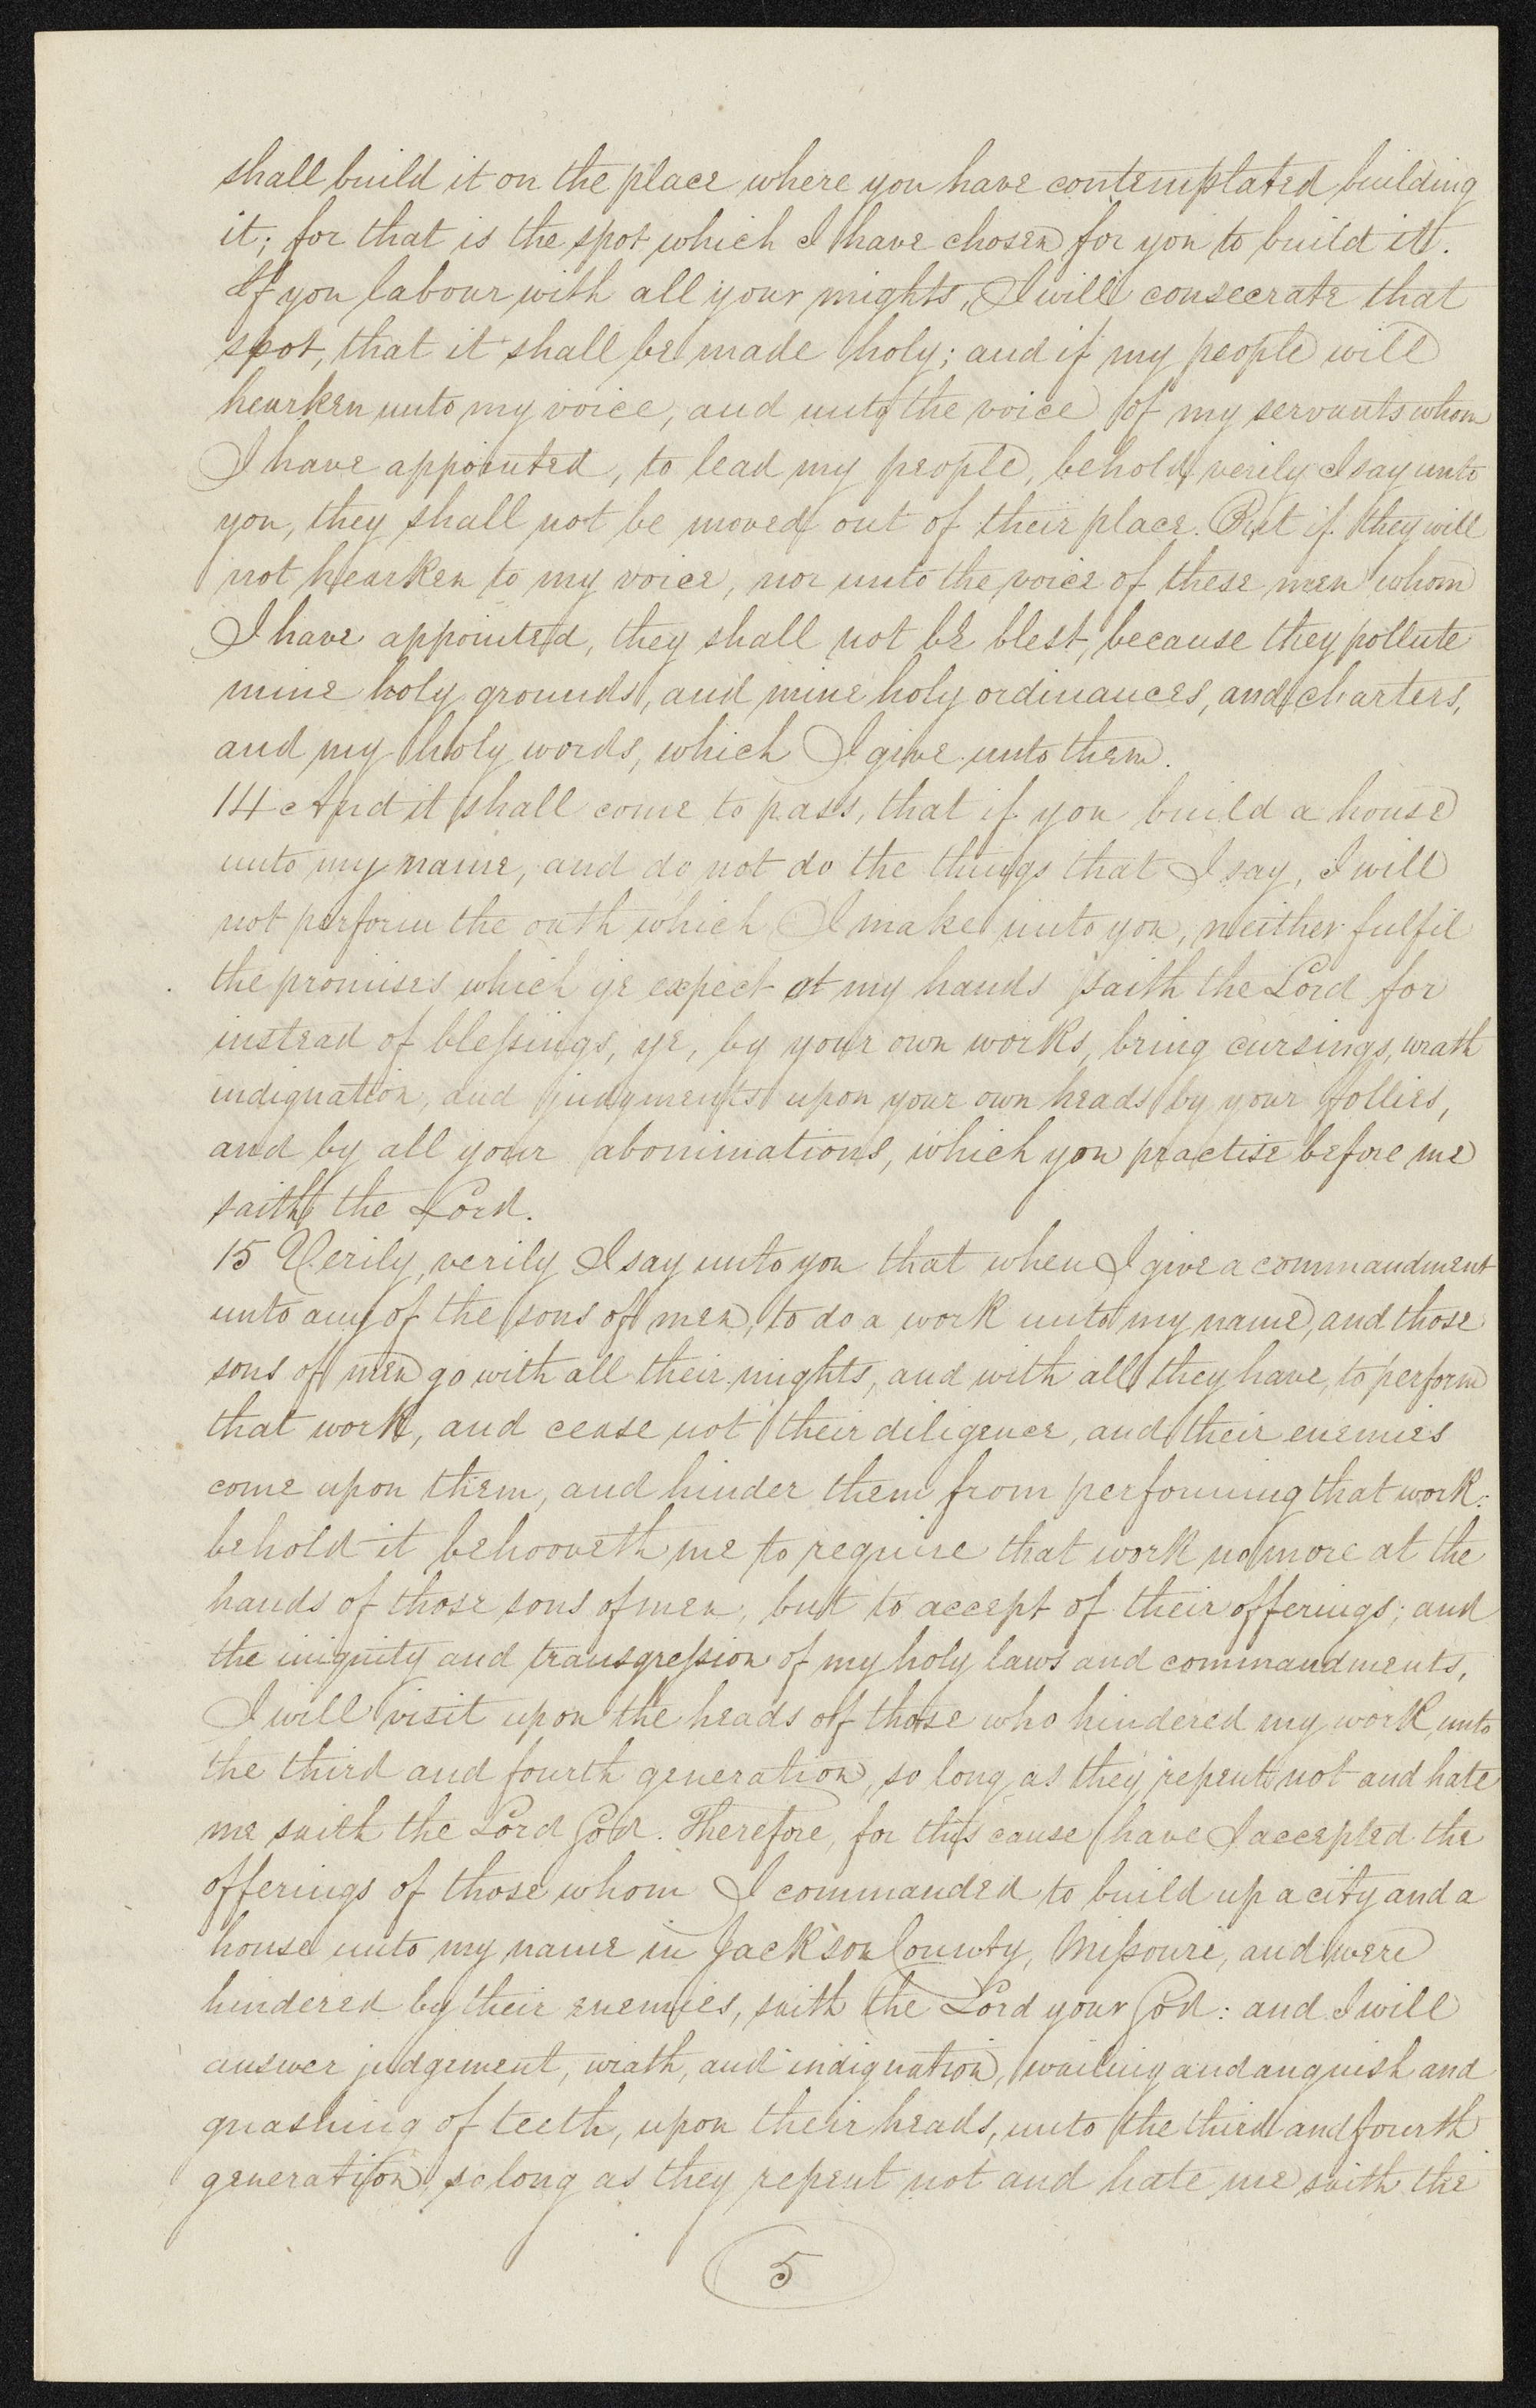 shall build it on the place where you have contemplated building
it; for that is the spot which I have chosen for you to build it.
If you labour with all your mights, I will consecrate that
spot, that it shall be made holy; and if my people will
hearken unto my voice, and unto the voice of my servants whom
I have appointed, to lead my people, behold, verily I say unto
you, they shall not be moved out of their place. But if they will
not hearken to my voice, nor unto the voice of these men whom
I have appointed, they shall not be blest, because they pollute
mine holy grounds, and mine holy ordinances, and charters,
and my holy words, which I give unto them.
14 And it shall come to pass, that if you build a house
unto my name, and do not do the things that I say, I will
not perform the oath which I make unto you, neither fulfil
the promises which ye expect at my hands saith the Lord for
instead of blessings, ye, by your own works, bring cursings, wrath
indignation, and judgments upon your own heads by your follies,
and by all your abominations, which you practise before me
saith the Lord.
15 Verily, verily I say unto you that when I give a commandment
unto any of the sons of men, to do a work unto my name, and those
sons of men go with all their mights, and with all they have, to perform
that work, and cease not their diligence, and their enemies
come upon them, and hinder them from performing that work:
behold it behooveth me to require that work no more at the
hands of those sons of men, but to accept of their offerings; and
the iniquity and transgression of my holy laws and commandments,
I will visit upon the heads of those who hindered my work, unto
the third and fourth generation, so long as they repent not and hate
me saith the Lord God. Therefore, for this cause have I accepted the
offerings of those whom I commanded to build up a city and a
house unto my name in Jackson County, Missouri, and were
hindered by their enemies, saith the Lord your God: and I will
answer judgement, wrath, and indignation, wailing and anguish and
gnashing of teeth, upon their heads, unto the third and fourth
generation, so long as they repent not and hate me saith the
5